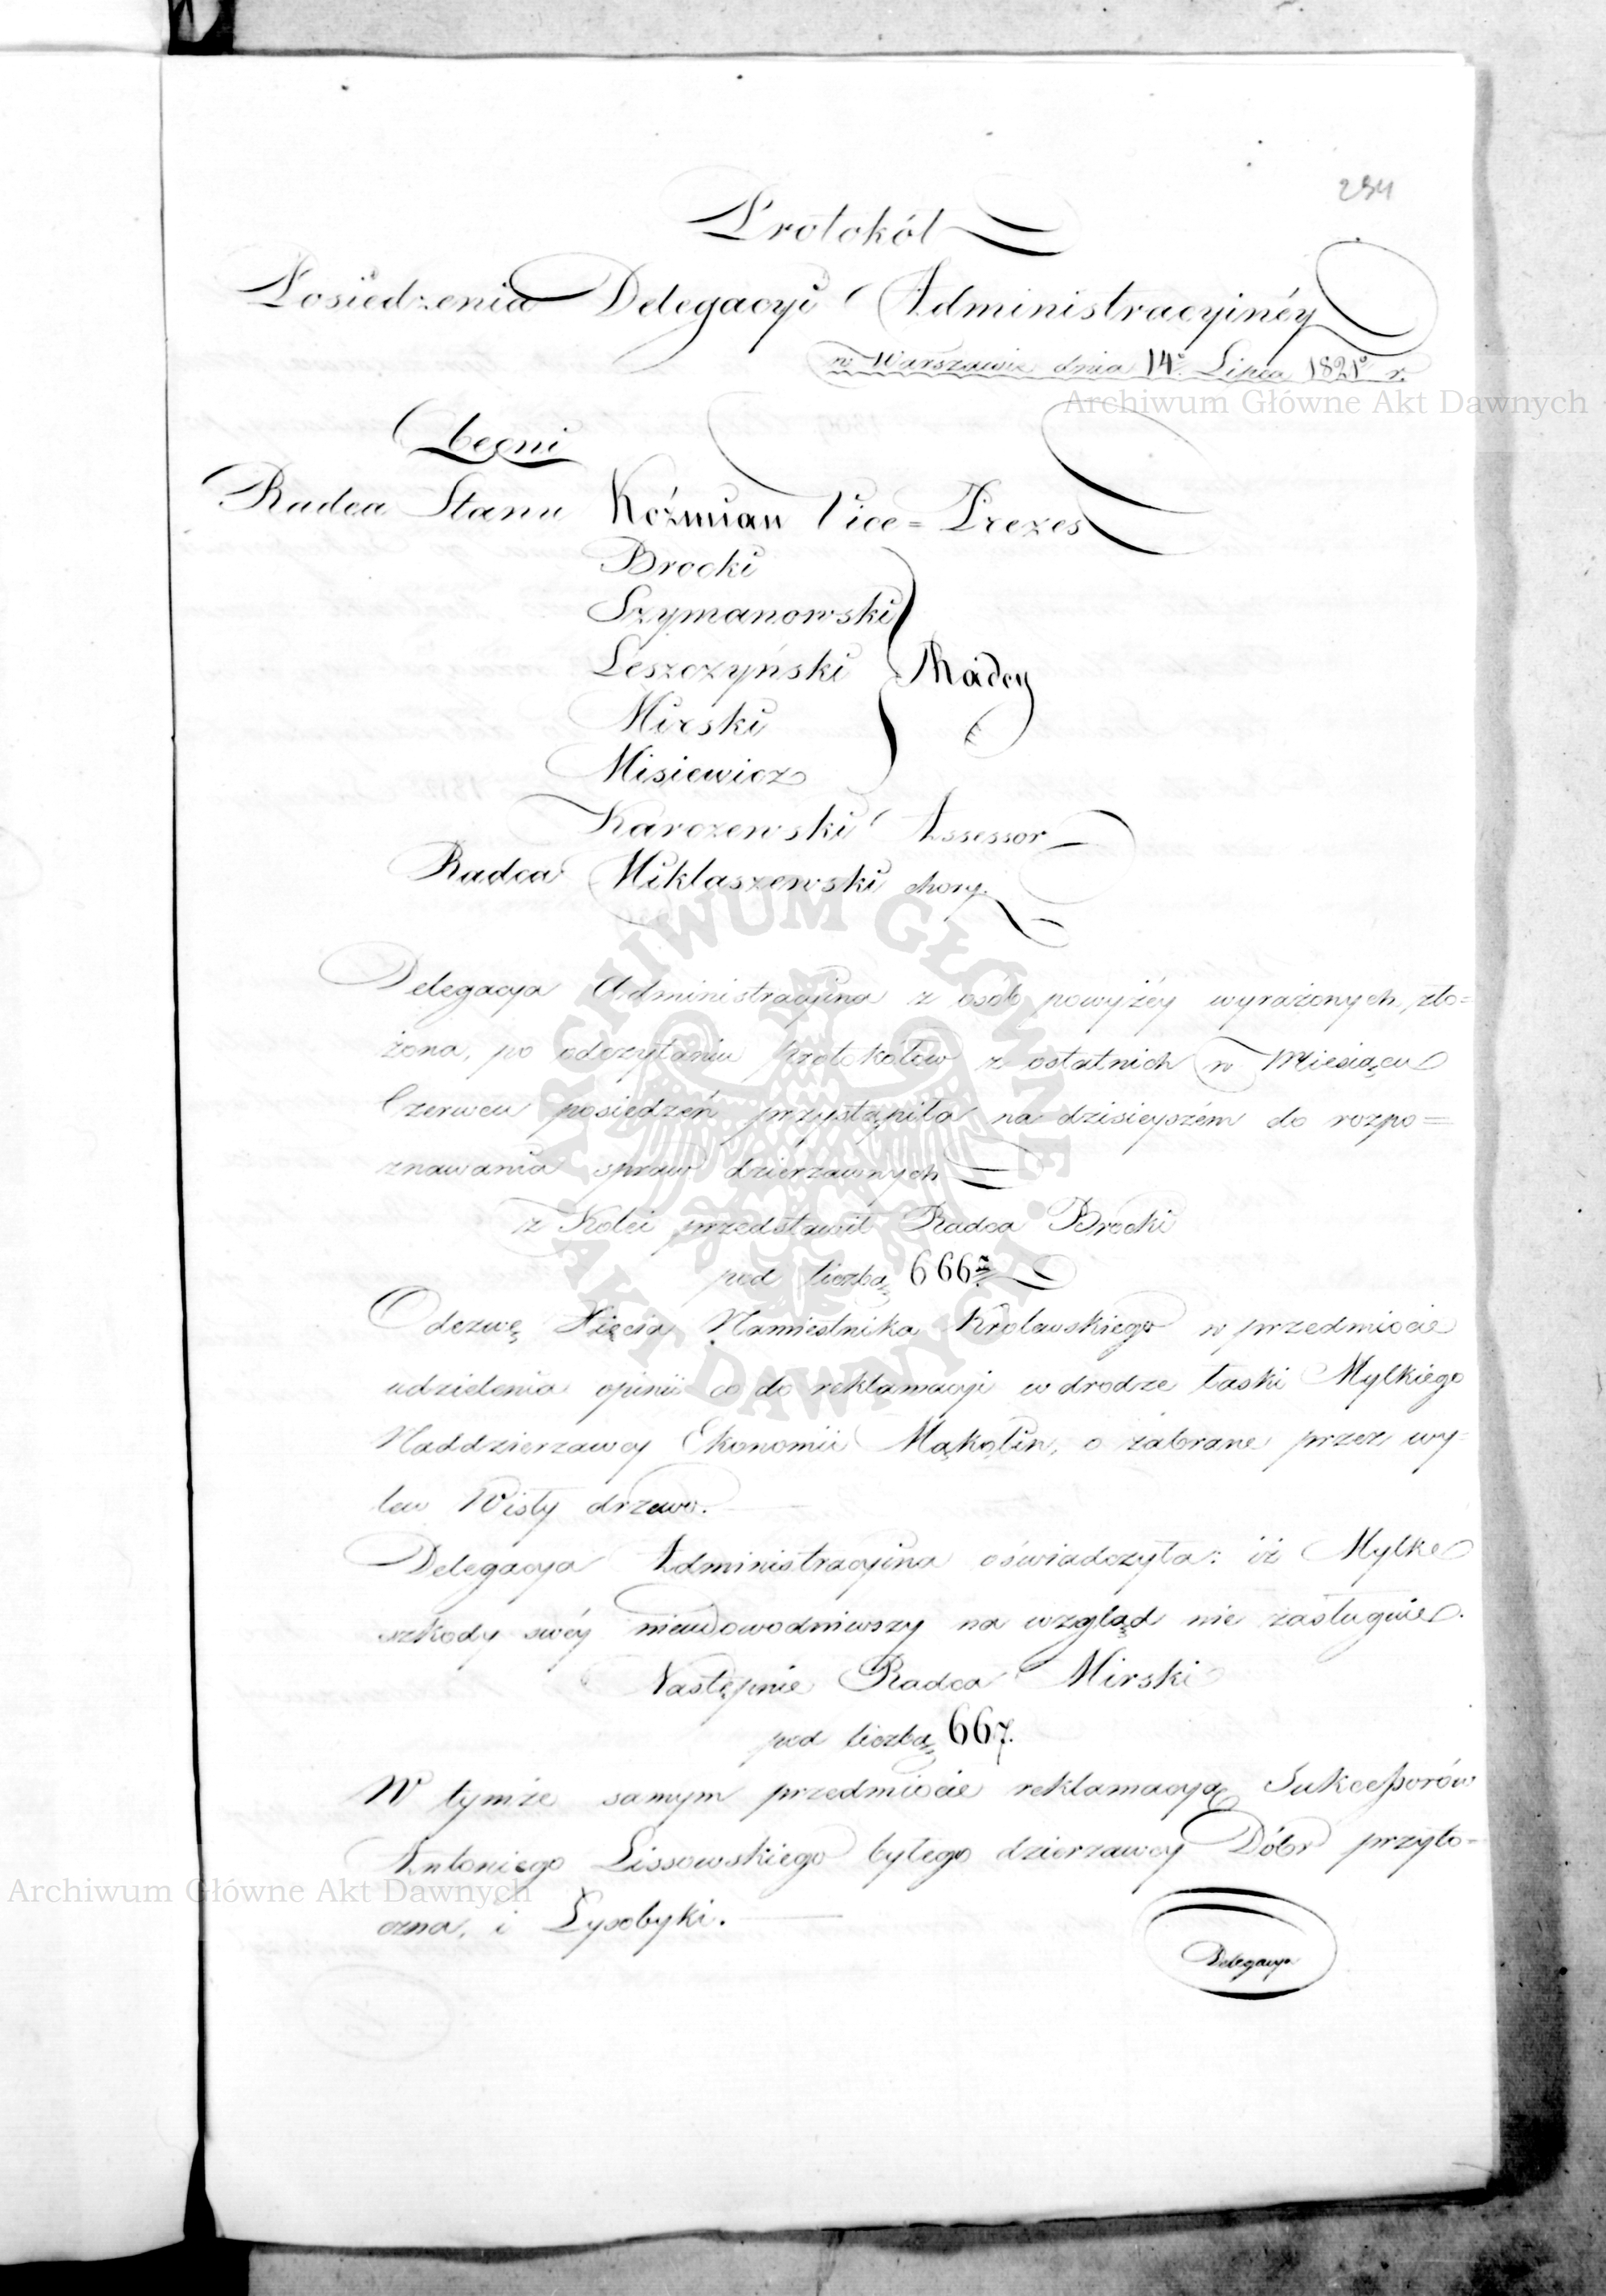 294
Protokół
Posiedzenia Delegacyi Administracyinéy
w Warszawie dnia 14º Lipca 1821º r.
Archiwum Główne Akt Dawnych
Obecni
Radca Stanu Koźmian Vice=Prezes
Brocki
Szymanowski
Leszczyński Radcy
Mirski
Misiewicz
Karczewski Assessor
Radca Miklaszewski chory.
Delegacya Administracyina z osób powyżéy wyrażonych, zło=
żona, po odczytaniu protokołów z ostatnich w Miesiącu
Czerwcu posiedzeń przystąpiła na dzisieyszém do rozpo=
znawania spraw dzierzawnych
z Kolei przedstawił Radca Brocki
pod liczbą 666ą
Odezwę Xięcia Namiestnika Krolewskiego w przedmiocie
udzielenia opinii co do reklamacyi w drodze łaski Mylkiego
Naddzierzawcy Ekonomii Mąkolin, o zabrane przez wy=
lew Wisły drzewo.
Delegacya Administracyina oświadczyła: iż Mylke
szkody swéy nieudowodniwszy na wzgląd nie zasługuie.
Następnie Radca Mirski
pod liczbą 667.
W tymże samym przedmiocie reklamacyą Sukceßorów
Antoniego Lissowskiego byłego dzierzawcy Dóbr przyto=
czna, i Łysobyki.
Archiwum Główne Akt Dawnych
Delegacya
ARCHIWUM GŁÓWNE AKT DAWNYCH